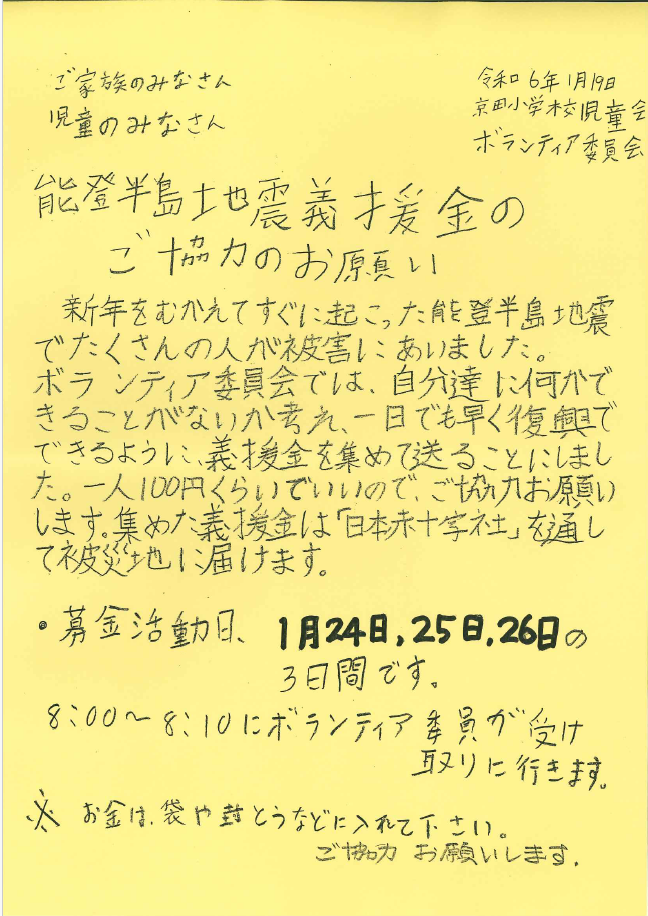 ご家族のみなさん
児童のみなさん
令和6年1月19日
京田小学校児童会
ボランティア委員会
能登半島地震義援金の
ご協力のお願い
新年をむかえてすぐに起こった能登半島地震
でたくさんの人が被害にあいました。
ボランティア委員会では、自分達に何かで
きることがないか考え、一日でも早く復興で
できるように、義援金を集めて送ることにしまし
た。一人100円くらいでいいので、ご協力お願い
します。集めた義援金は「日本赤十字社」を通し
て被災地に届けます。
・募金活動日、1月24日,25日,26日の
3日間です。
8:00〜8:10にボランティア委員が受け
取りに行きます。
※お金は、袋や封とうなどに入れて下さい。
ご協力お願いします.